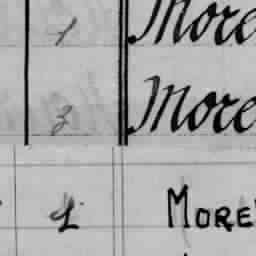 1 More
3 More
1 MORE